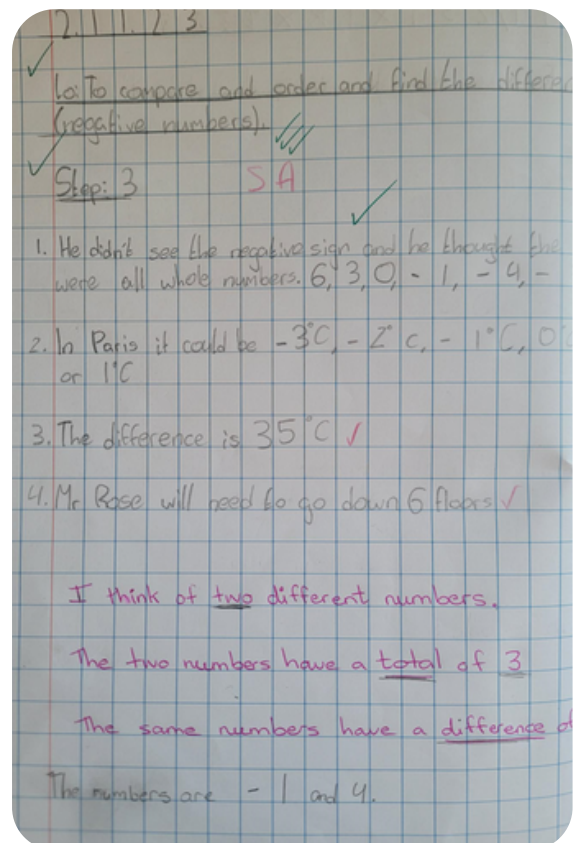 2.11.23
Lo: To compare and order and find the differe
(negative numbers).
Step: 3 SA
1. He didn't see the negative sign and he thought the
were all whole numbers. 6, 3, 0, - 1, - 4, -
2. In Paris it could be -3°C, - 2°C, - 1°C, 0°
or 1°C
3. The difference is 35°C
4. Mr Rose will need to go down 6 floors
I think of two different numbers.
The two numbers have a total of 3
The same numbers have a difference of
The numbers are - 1 and 4.